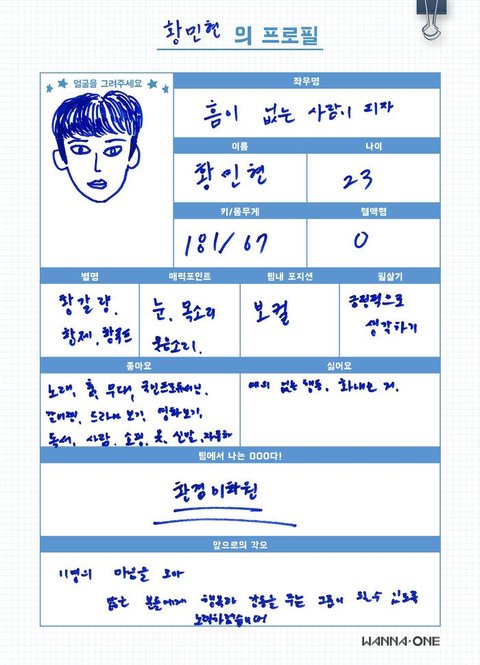 황민현 의 프로필
★★ 얼굴을 그려주세요 ★★
좌우명
흠이 없는 사람이 되자
이름
나이
황민현
23
키/몸무게
혈액형
181/67
O
별명
매력포인트
팀내 포지션
필살기
황갈량,
황제, 황국프
눈, 목소리
웃음소리.
보컬
긍정적으로
생각하기
좋아요
싫어요
노래, 춤, 무대, 국민프로듀서님,
드라마 보기, 영화보기,
독서, 사람, 쇼핑, 옷, 신발,
예의 없는 행동, 화내는 거.
팀에서 나는 OOO다!
황경이화원
앞으로의 각오
11명의 마음을 모아
많은 분들에게 행복과 감동을 주는 그룹이 될 수 있도록
노력하겠습니다
WANNA·ONE